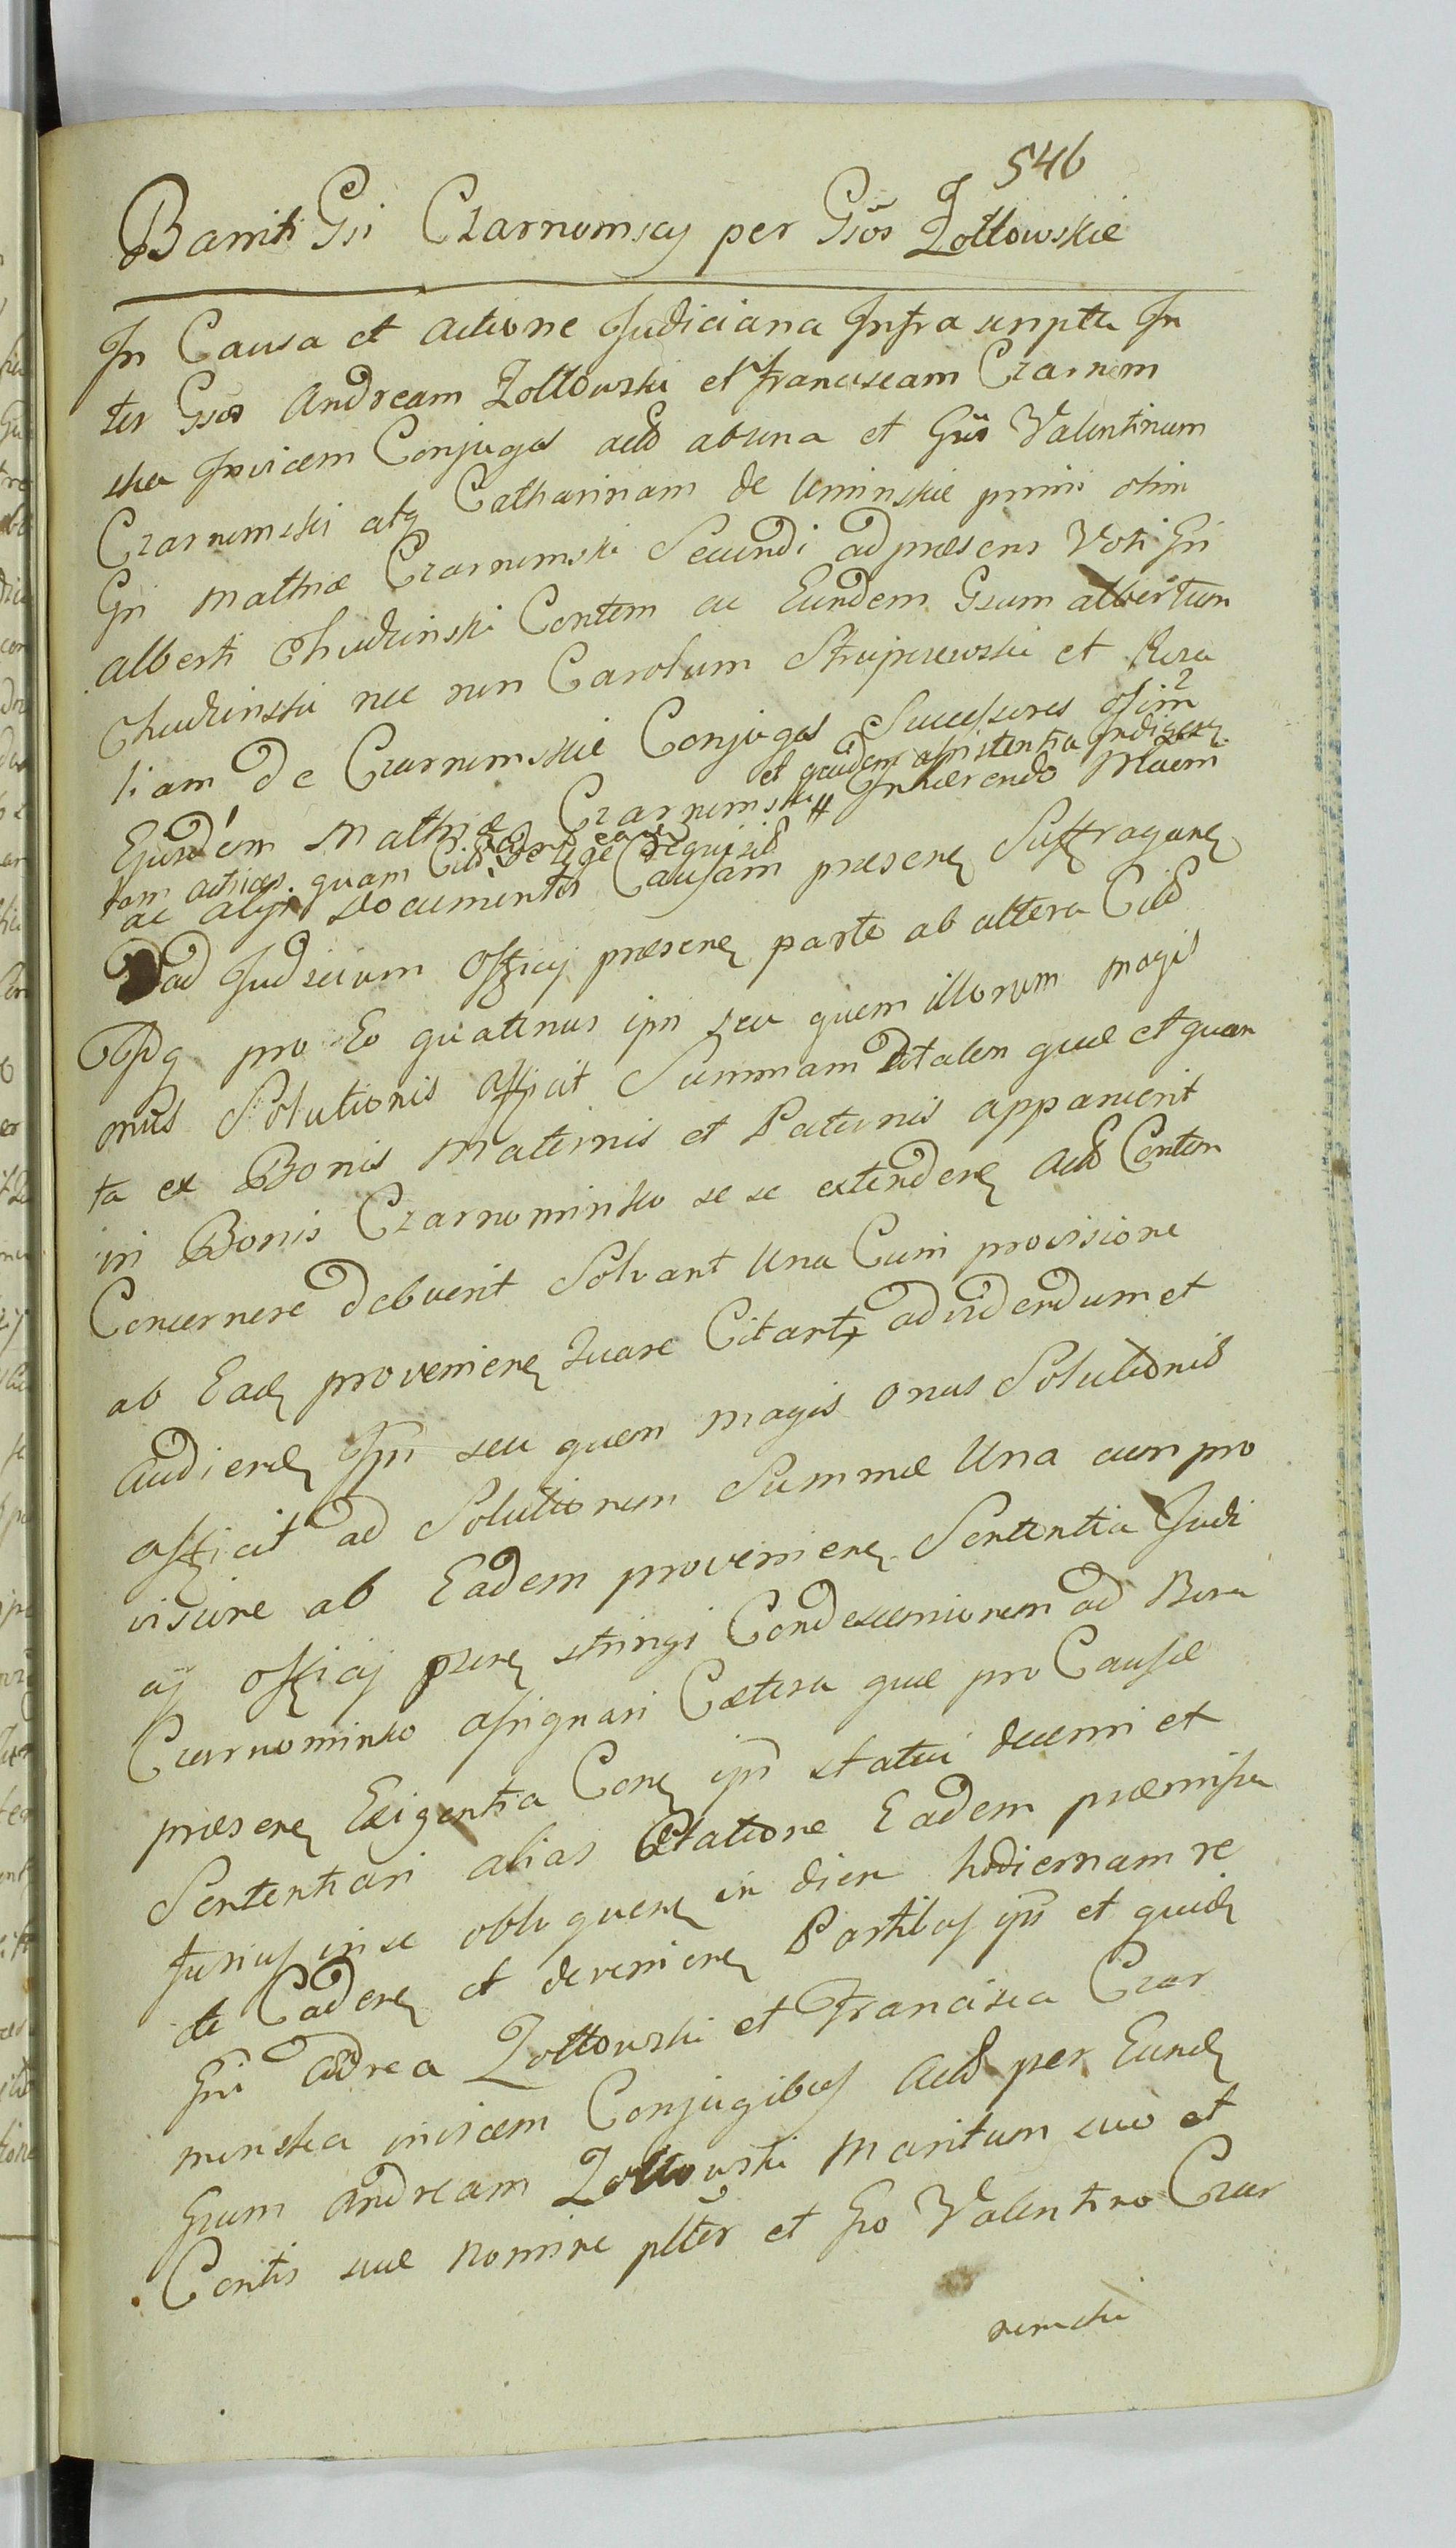 546
Banniti Gsi Czarnomscy per Gsos Zołtowskie
In Causa et actione Judiciaria Infra scripta In
ter Gsos Andream Zołtowski et Franciscam Czarnom
ska Invicem Conjuges act̃o ab una et Gsos Valentinum
Czarnomski atq Catharinam de Uminskie primi olim
Gsi Mathiæ Czarnomski Secundi ad præsens Voti Gsi
Alberti Chudzinski Contem ac Eundem Gsum Albertum
Chudzinski nec non Carolum Strupczewski et Roza
liam de Czarnomskie Conjuges Successores olim
Ejundem Mathiæ Czarnomski # Inhærendo
et quidem assistentia Indigen
tam actrices quam Citd de lege requisit
ac alys Documentis Causam præsen Suffragan
ad Judicium Officij præsen parte ab altera Citd
pro Eo quatenus ipsi seu quem illorum magis
onus Solutionis afficit Summam Dotalem quæ et quan
ta ex Bonis Maternis et Paternis appanerit
in Bonis Czarnominko se se extenden Actd Contem
Concernere debuerit Solvant Una Cum provisione
ab Eadem provenien Quare Citant ad videndum et
audiend Ipsi seu quem magis onus Solutionis
afficit ad Solutionem Summæ Una cum pro
visione ab Eadem provenien Sententia Judi
cij Officij præsen stringi Condescensionem ad Bona
Czarnominko assignari Cætera quæ pro Causæ
præsen Exigentia Conz ipsi statui decerni et
Sententiari alias Citatione Eadem præmissa
fusius in se obloquen in diem hodiernam re
te Caden et devenien Partibus ipsis et quid
Gsi Adrea Zołtowski et Francisca Czar
nonska invicem Conjugibus Actd per Eund
Gsum Andream Zołtowski Maritum suo et
Contis suæ nomine plter et Gso Valentino Czar
nomski